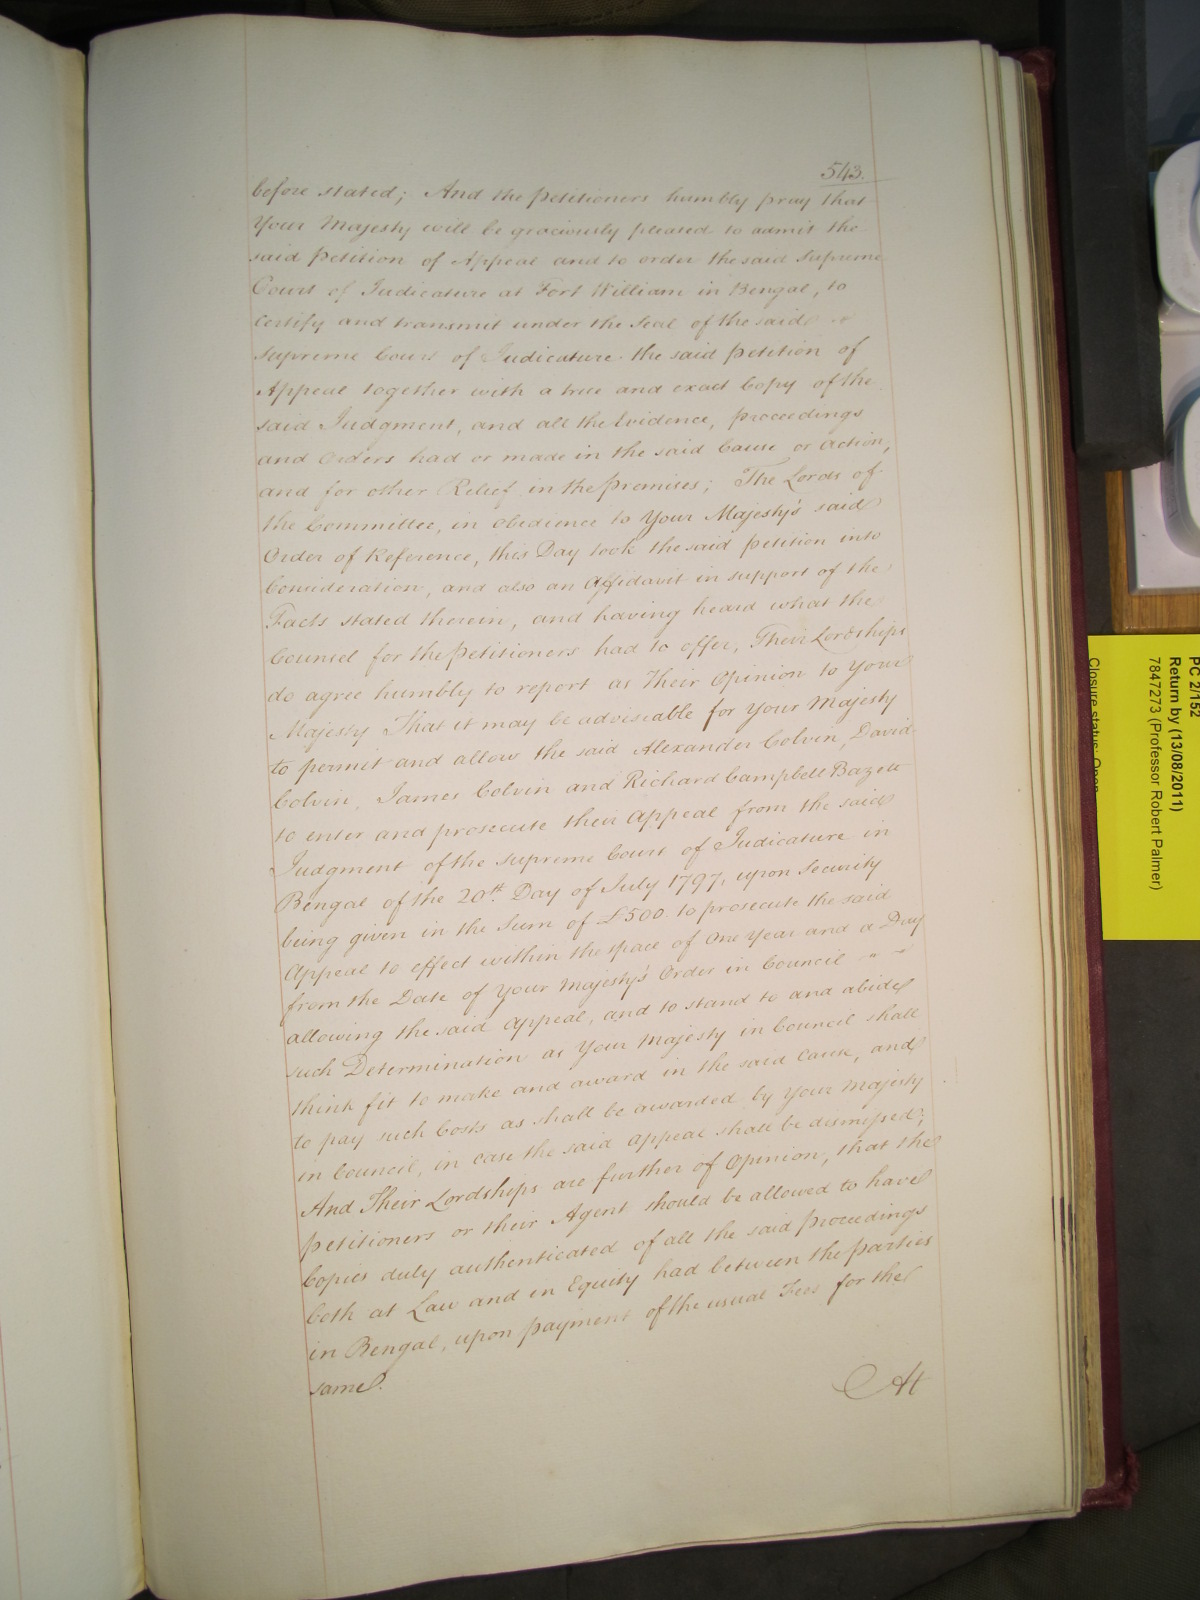 543.
before stated; And the Petitioners humbly pray that
Your Majesty will be graciously pleased to admit the
said Petition of Appeal and to order the said Supreme
Court of Judicature at Fort William in Bengal, to
certify and transmit under the Seal of the said
Supreme Court of Judicature the said Petition of
Appeal together with a true and exact Copy of the
said Judgment, and all the Evidence, proceedings
and Orders had or made in the said Cause or Action,
and for other Relief in the Premises; The Lords of
the Committee, in obedience to Your Majesty's said
Order of Reference, this Day took the said Petition into
Consideration, and also an Affidavit in support of the
Facts stated therein, and having heard what the
Counsel for the Petitioners had to offer, Their Lordships
do agree humbly to report as Their Opinion to Your
Majesty That it may be adviseable for Your Majesty
to permit and allow the said Alexander Colvin, David
Colvin, James Colvin and Richard Campbell Bazett
to enter and prosecute their Appeal from the said
Judgment of the Supreme Court of Judicature in
Bengal of the 20th. Day of July 1797, upon Security
being given in the Sum of £500 to prosecute the said
Appeal to effect within the space of One Year and a Day
from the Date of Your Majesty's Order in Council " "
allowing the said Appeal, and to stand to and abide
such Determination as Your Majesty in Council shall
think fit to make and award in the said Cause, and
to pay such Costs as shall be awarded by Your Majesty
in Council, in case the said Appeal shall be dismissed;
And Their Lordships are further of Opinion, that the
petitioners or their Agent should be allowed to have
Copies duly authenticated of all the said Proceedings
both at Law and in Equity had between the parties
in Bengal, upon payment of the usual Fees for the
same.
At
PC 2/152
Return by (13/08/2011)
7847273 (Professor Robert Palmer)
Closure status: Open